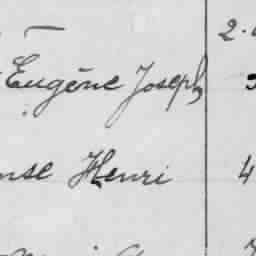 2.
Eugène Joseph
nse Henri 4